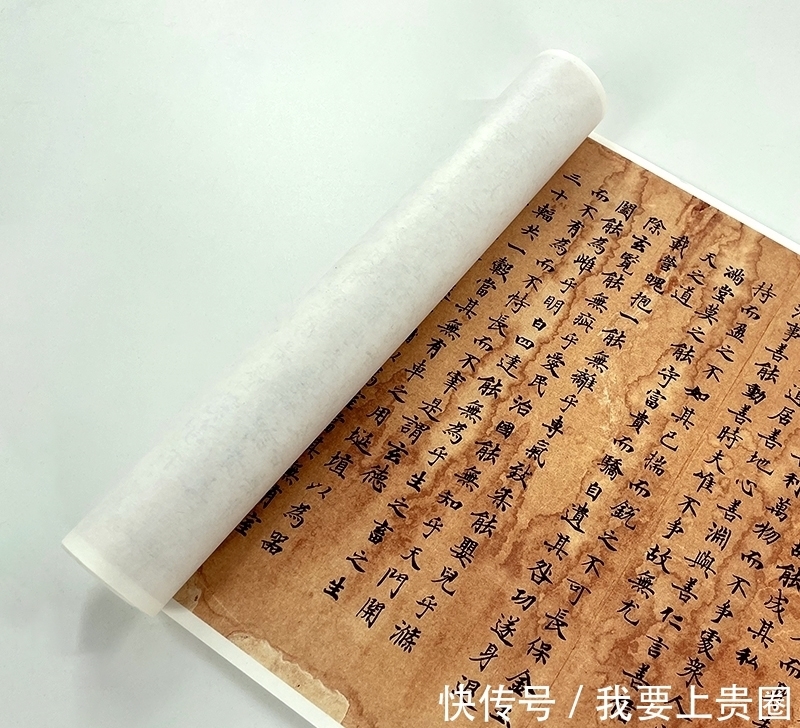 能成其私
利萬物而不爭處衆人
道居善地心善淵與善仁言善
事善能動善時夫唯不爭故無尤
持而盈之不如其已揣而銳之不可長保金玉
滿堂莫之能守富貴而驕自遺其咎功遂身退
天之道
載營魄抱一能無離乎專氣致柔能嬰兒乎滌
除玄覽能無疵乎愛民治國能無知乎天門開
闔能為雌乎明白四達能無為乎生之畜之生
而不有為而不恃長而不宰是謂玄德
三十輻共一轂當其無有車之用埏埴以為器
快传号 / 我要上贵圈